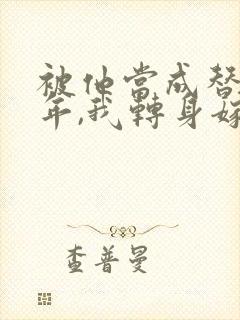 被他当成替
年,我转身嫁
查普曼